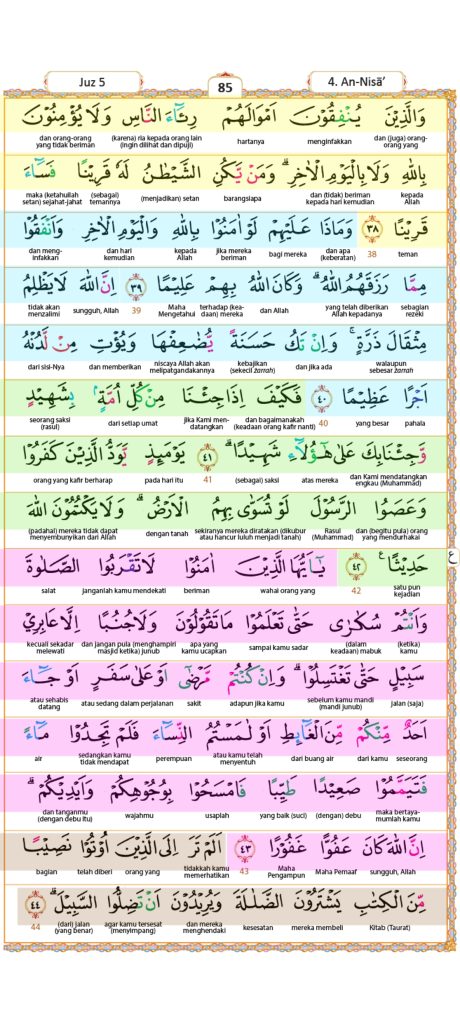 Juz 5
85
4. An-Nisā’
وَالَّذِيْنَ يُنْفِقُوْنَ اَمْوَالَهُمْ رِئَاۤءَ النَّاسِ وَلَا يُؤْمِنُوْنَ
dan (juga) orang-
orang yang
menginfakkan
hartanya
(karena) ria kepada orang lain
(ingin dilihat dan dipuji)
dan orang-orang
yang tidak beriman
بِاللّٰهِ وَلَا بِالْيَوْمِ الْاٰخِرِ ۗ وَمَنْ يَّكُنِ الشَّيْطٰنُ لَهٗ قَرِيْنًا فَسَاۤءَ
kepada
Allah
dan (tidak) beriman
kepada hari kemudian
barangsiapa
(menjadikan) setan
(sebagai)
temannya
maka (ketahuilah
setan) sejahat-jahat
قَرِيْنًا ٣٨ وَمَاذَا عَلَيْهِمْ لَوْ اٰمَنُوْا بِاللّٰهِ وَالْيَوْمِ الْاٰخِرِ وَاَنْفَقُوْا
teman
38
dan apa
(keberatan)
bagi mereka
jika mereka
beriman
kepada
Allah
dan hari
kemudian
dan meng-
infakkan
مِمَّا رَزَقَهُمُ اللّٰهُ ۗ وَكَانَ اللّٰهُ بِهِمْ عَلِيْمًا ٣٩ اِنَّ اللّٰهَ لَا يَظْلِمُ
sebagian
rezeki
yang telah diberikan
Allah kepadanya
dan Allah
terhadap (kea-
daan) mereka
Maha
Mengetahui
39
sungguh, Allah
tidak akan
menzalimi
مِثْقَالَ ذَرَّةٍ ۚ وَاِنْ تَكُ حَسَنَةً يُّضٰعِفْهَا وَيُؤْتِ مِنْ لَّدُنْهُ
walaupun
sebesar zarrah
dan jika ada
kebajikan
(sekecil zarrah)
niscaya Allah akan
melipatgandakannya
dan memberikan
dari sisi-Nya
اَجْرًا عَظِيْمًا ٤٠ فَكَيْفَ اِذَا جِئْنَا مِنْ كُلِّ اُمَّةٍ ۢ بِشَهِيْدٍ
pahala
yang besar
40
dan bagaimanakah
(keadaan orang kafir nanti)
jika Kami men-
datangkan
dari setiap umat
seorang saksi
(rasul)
وَّجِئْنَا بِكَ عَلٰى هٰٓؤُلَاۤءِ شَهِيْدًا ۗ ٤١ يَوْمَىِٕذٍ يَّوَدُّ الَّذِيْنَ كَفَرُوْا
dan Kami mendatangkan
engkau (Muhammad)
atas mereka
(sebagai) saksi
41
pada hari itu
orang yang kafir berharap
وَعَصَوُا الرَّسُوْلَ لَوْ تُسَوّٰى بِهِمُ الْاَرْضُ ۗ وَلَا يَكْتُمُوْنَ اللّٰهَ
dan (begitu pula) orang
yang mendurhakai
Rasul
(Muhammad)
sekiranya mereka diratakan (dikubur
atau hancur luluh menjadi tanah)
dengan tanah
(padahal) mereka tidak dapat
menyembunyikan dari Allah
حَدِيْثًا ࣖ ٤٢ يٰٓاَيُّهَا الَّذِيْنَ اٰمَنُوْا لَا تَقْرَبُوا الصَّلٰوةَ
ع
satu pun
kejadian
42
wahai orang yang
beriman
janganlah kamu mendekati
salat
وَاَنْتُمْ سُكٰرٰى حَتّٰى تَعْلَمُوْا مَا تَقُوْلُوْنَ وَلَا جُنُبًا اِلَّا عَابِرِيْ
(ketika)
kamu
(dalam
keadaan) mabuk
sampai kamu sadar
apa yang
kamu ucapkan
dan jangan pula (menghampiri
masjid ketika) junub
kecuali sekadar
melewati
سَبِيْلٍ حَتّٰى تَغْتَسِلُوْا ۗ وَاِنْ كُنْتُمْ مَّرْضٰٓى اَوْ عَلٰى سَفَرٍ اَوْ جَاۤءَ
jalan (saja)
sebelum kamu mandi
(mandi junub)
adapun jika kamu
sakit
atau sedang dalam perjalanan
atau sehabis
datang
اَحَدٌ مِّنْكُمْ مِّنَ الْغَاۤىِٕطِ اَوْ لٰمَسْتُمُ النِّسَاۤءَ فَلَمْ تَجِدُوْا مَاۤءً
seseorang
dari kamu
dari buang air
atau kamu telah
menyentuh
perempuan
sedangkan kamu
tidak mendapat
air
فَتَيَمَّمُوْا صَعِيْدًا طَيِّبًا فَامْسَحُوْا بِوُجُوْهِكُمْ وَاَيْدِيْكُمْ ۗ
maka bertaya-
mumlah kamu
(dengan) debu
yang baik (suci)
usaplah
wajahmu
dan tanganmu
(dengan debu itu)
اِنَّ اللّٰهَ كَانَ عَفُوًّا غَفُوْرًا ٤٣ اَلَمْ تَرَ اِلَى الَّذِيْنَ اُوْتُوْا نَصِيْبًا
sungguh, Allah
Maha Pemaaf
Maha
Pengampun
43
tidakkah kamu
memerhatikan
orang yang
telah diberi
bagian
مِّنَ الْكِتٰبِ يَشْتَرُوْنَ الضَّلٰلَةَ وَيُرِيْدُوْنَ اَنْ تَضِلُّوا السَّبِيْلَ ۗ ٤٤
Kitab (Taurat)
mereka membeli
kesesatan
dan mereka
menghendaki
agar kamu tersesat
(menyimpang)
(dari) jalan
(yang benar)
44